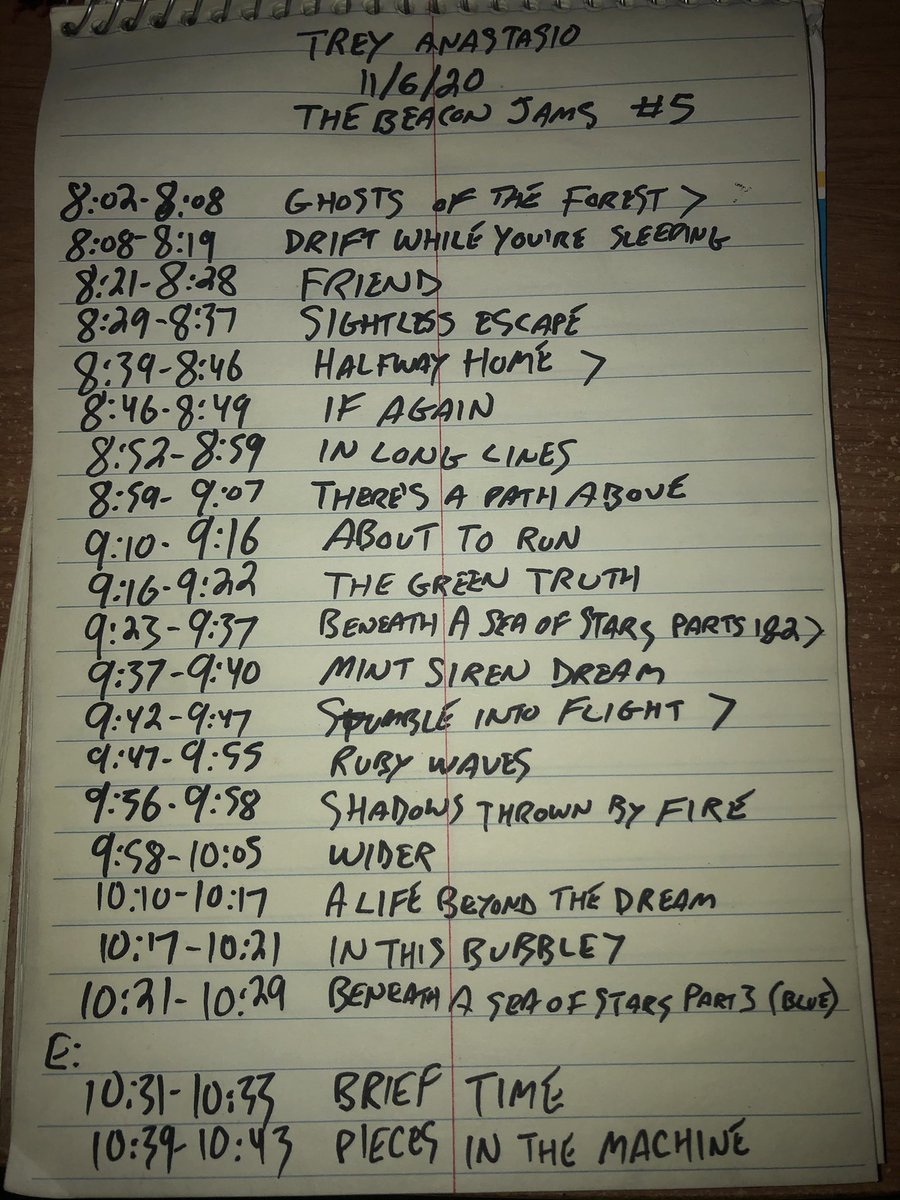 TREY ANASTASIO
11/6/20
THE BEACON JAMS #5
8:02-8:08 GHOSTS OF THE FOREST >
8:08-8:19 DRIFT WHILE YOU'RE SLEEPING
8:21-8:28 FRIEND
8:29-8:37 SIGHTLESS ESCAPE
8:39-8:46 HALFWAY HOME >
8:46-8:49 IF AGAIN
8:52-8:59 IN LONG LINES
8:59-9:07 THERE'S A PATH ABOVE
9:10-9:16 ABOUT TO RUN
9:16-9:22 THE GREEN TRUTH
9:23-9:37 BENEATH A SEA OF STARS PARTS 1&2 >
9:37-9:40 MINT SIREN DREAM
9:42-9:47 STUMBLE INTO FLIGHT >
9:47-9:55 RUBY WAVES
9:56-9:58 SHADOWS THROWN BY FIRE
9:58-10:05 WIDER
10:10-10:17 A LIFE BEYOND THE DREAM
10:17-10:21 IN THIS BUBBLE >
10:21-10:29 BENEATH A SEA OF STARS PART 3 (BLUE)
E:
10:31-10:33 BRIEF TIME
10:39-10:43 PIECES IN THE MACHINE